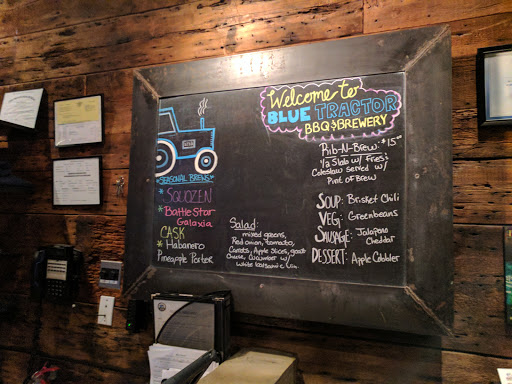 Welcome to
BLUE TRACTOR
BBQ & BREWERY
Rib-N-Brew: $15.00
1/2 Slab w/ fries
Coleslaw served w/
Pint of Brew
*SEASONAL BREWS*
* SQUOZEN
* Battle Star
Galaxia
CASK
* Habanero
Pineapple Porter
Salad:
mixed greens,
Red onion, tomato,
Carrots, Apple Slices, goat
Cheese, Cucumber w/
white balsamic vin.
SOUP: Brisket Chili
VEG: Greenbeans
SAUSAGE: Jalapeno
Cheddar
DESSERT: Apple Cobbler